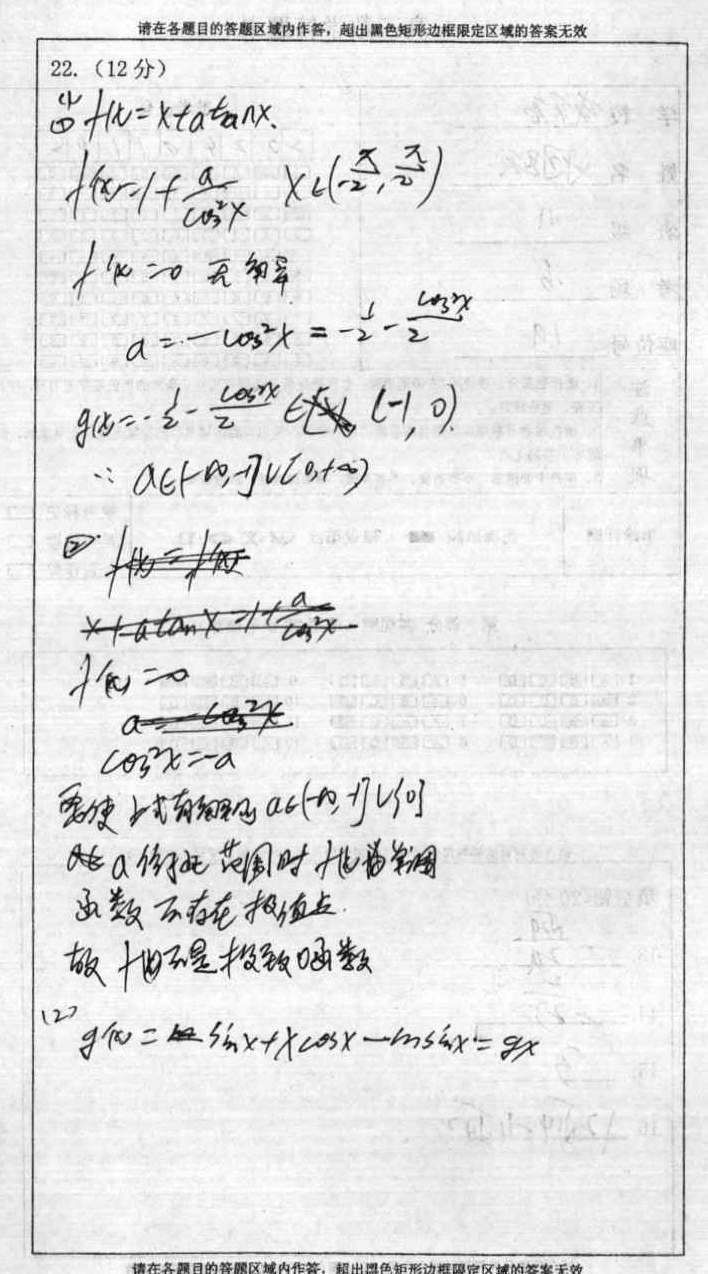 请在各题目的答题区域内作答，超出黑色矩形边框限定区域的答案无效
22.（12分）
(1)
① f(x)=x+atanx.
f'(x)=1+a/cos²x x∈(-π/2,π/2)
f'(x)=0 无解
a=-cos²x=-1/2-cos2x/2
g(x)=-1/2-cos2x/2 ∈ (-1,0)
∴ a∈(-∞,-1]∪[0,+∞)
②. f(x)=f'(x)
x+atanx=1+a/cos²x
f'(x)=0
a=-cos²x
cos²x=-a
要使上式有 a∈(-∞,-1]∪{0}
a 范围时 f(x)为单调
函数 不存在极值点.
故 f(x)不是 函数
(2)
g'(x)= sinx+xcosx-msinx=gx
请在各题目的答题区域内作答，超出黑色矩形边框限定区域的答案无效